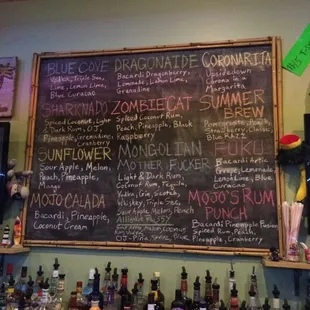 BLUE COVE
Vodka, Triple Sec,
Lime, Lemon Lime,
Blue Curacao
DRAGONAIDE
Bacardi Dragonberry,
Lemonade, Lemon Lime,
Grenadine
CORONARITA
Upsidedown
Corona in a
Marg
SHARKNADO
Spiced Coconut, Light
& Dark Rum, O.J.,
Pineapple, Grenadine
Cranberry
ZOMBIECAT
Spiced Coconut Rum,
Peach, Pineapple, Black
Raspberry
SUMMER
BREW
Strawberry, Classic,
Blue Razz
SUNFLOWER
Sour Apple, Melon,
Peach, Pineapple,
Mango
MONGOLIAN
MOTHER FUCKER
Light & Dark Rum,
Coconut Rum, Tequila,
Vodka, Gin, Scotch,
Whiskey, Triple Sec,
Sour Apple, Melon, Peach,
O.J., Pineapple
Bacardi Arctic
Grape, Lemonade,
Lemon Lime, Blue
Curacao
MOJO CALADA
Bacardi, Pineapple,
Coconut Cream
MOJO'S RUM
PUNCH
Bacardi Pineapple Fusion
Spiced Rum, Peach,
Pineapple, Cranberry